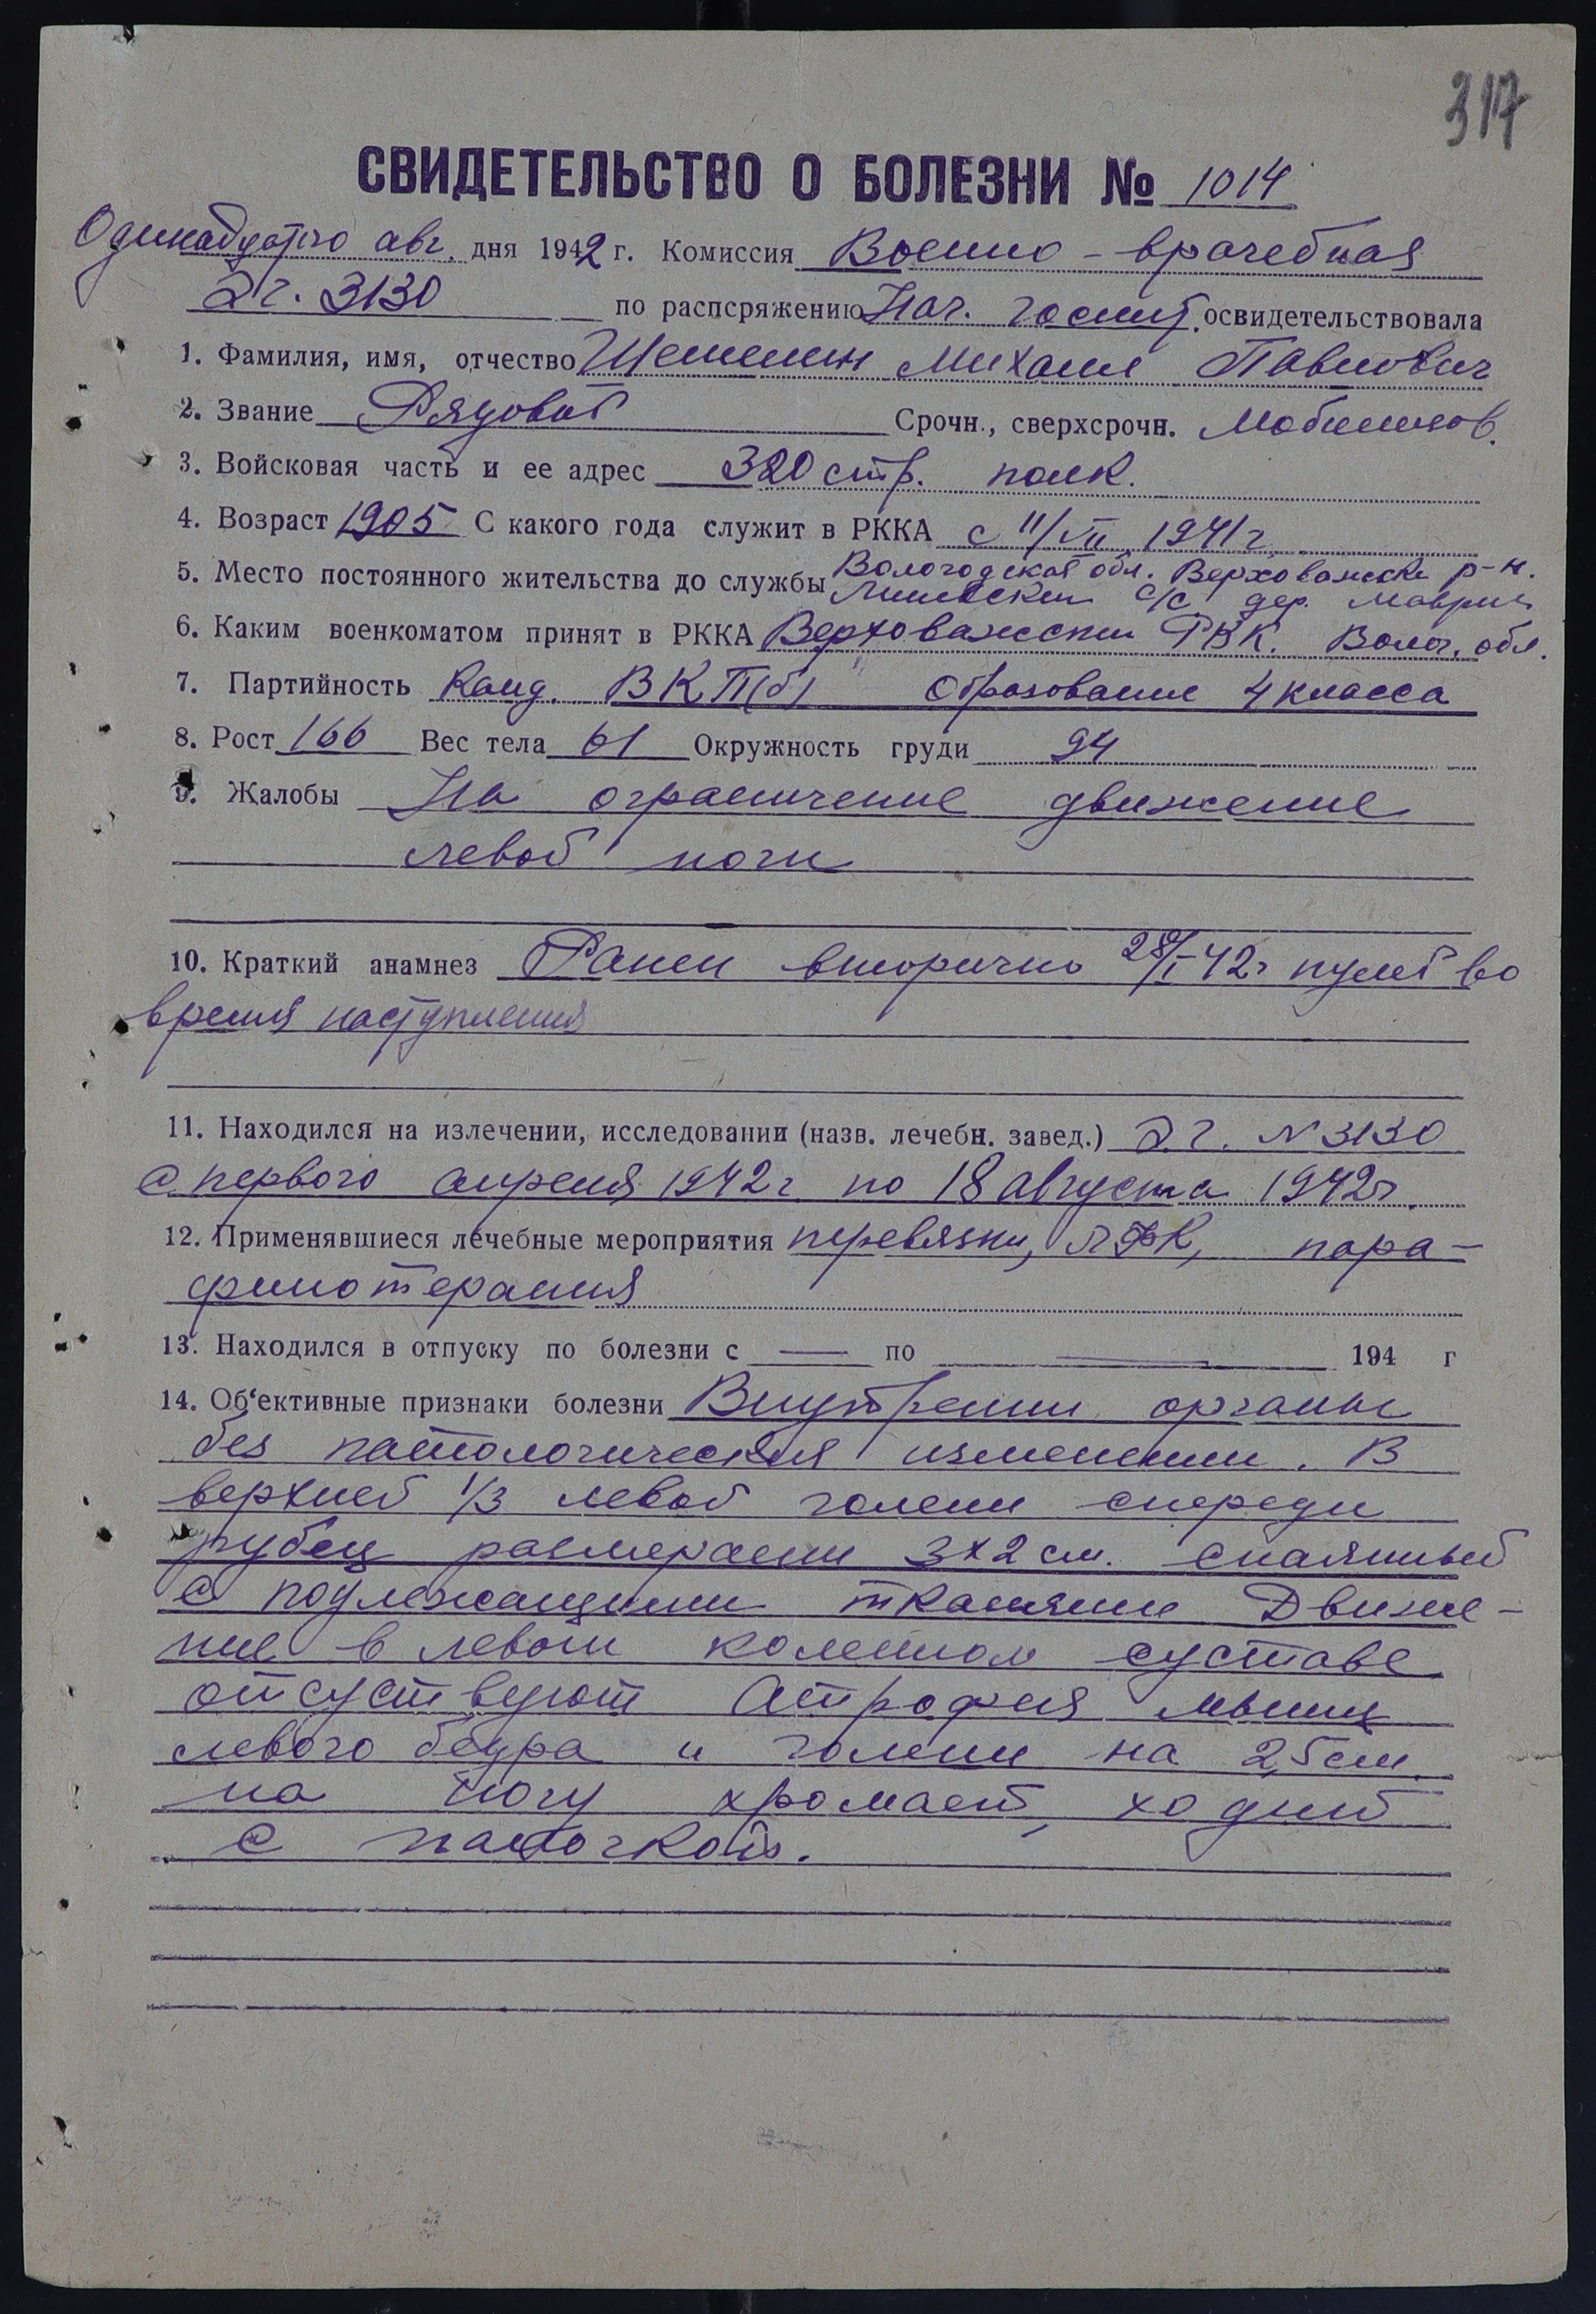 317
СВИДЕТЕЛЬСТВО О БОЛЕЗНИ № 1014
Одинадцатого авг. дня 1942 г. Комиссия Военно-врачебная
Э.г. 3130 по распоряжению Нач. госпит. освидетельствовала
1. Фамилия, имя, отчество Михаил Павлович
2. Звание Рядовой Срочн., сверхсрочн. Мобилизов.
3. Войсковая часть и ее адрес 320 стр. полк.
4. Возраст 1905 С какого года служит в РККА с 11/VII 1941 г.
5. Место постоянного жительства до службы Вологодская обл. Верховажский р-н.
с/с дер.
6. Каким военкоматом принят в РККА Верховажским РВК. Волог. обл.
7. Партийность Канд. ВКП(б) Образование 4 класса
8. Рост 166 Вес тела 61 Окружность груди 94
9. Жалобы На ограничение движение
левой ноги
10. Краткий анамнез Ранен вторично 28/I 42г пулей во
время наступления
11. Находился на излечении, исследовании (назв. лечебн. завед.) Э.Г. N 3130
с первого апреля 1942 г. по 18 августа 1942г.
12. Применявшиеся лечебные мероприятия перевязки, ЛФК, пара-
финотерапия
13. Находился в отпуску по болезни с — по — 194 г
14. Об'ективные признаки болезни Внутренни органы
без патологическия изменении. В
верхней 1/3 левой голени спереди
рубец размерами 3х2 см. спаянный
с подлежащими тканями Движе-
ние в левом коленном суставе
отсуствуют Атрофия мышц
левого бедра и голени на 2,5 см.
на ногу хромает, ходит
с палочкой.